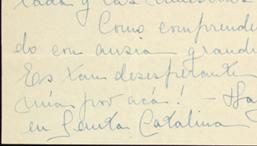 y las
Como comprende
do con ansia grand
Es tan desesperante
por acá! Ha
en Santa Catalina